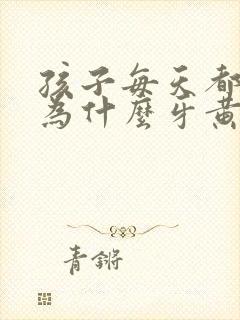 孩子每天都
為什麼牙黃
青鏘